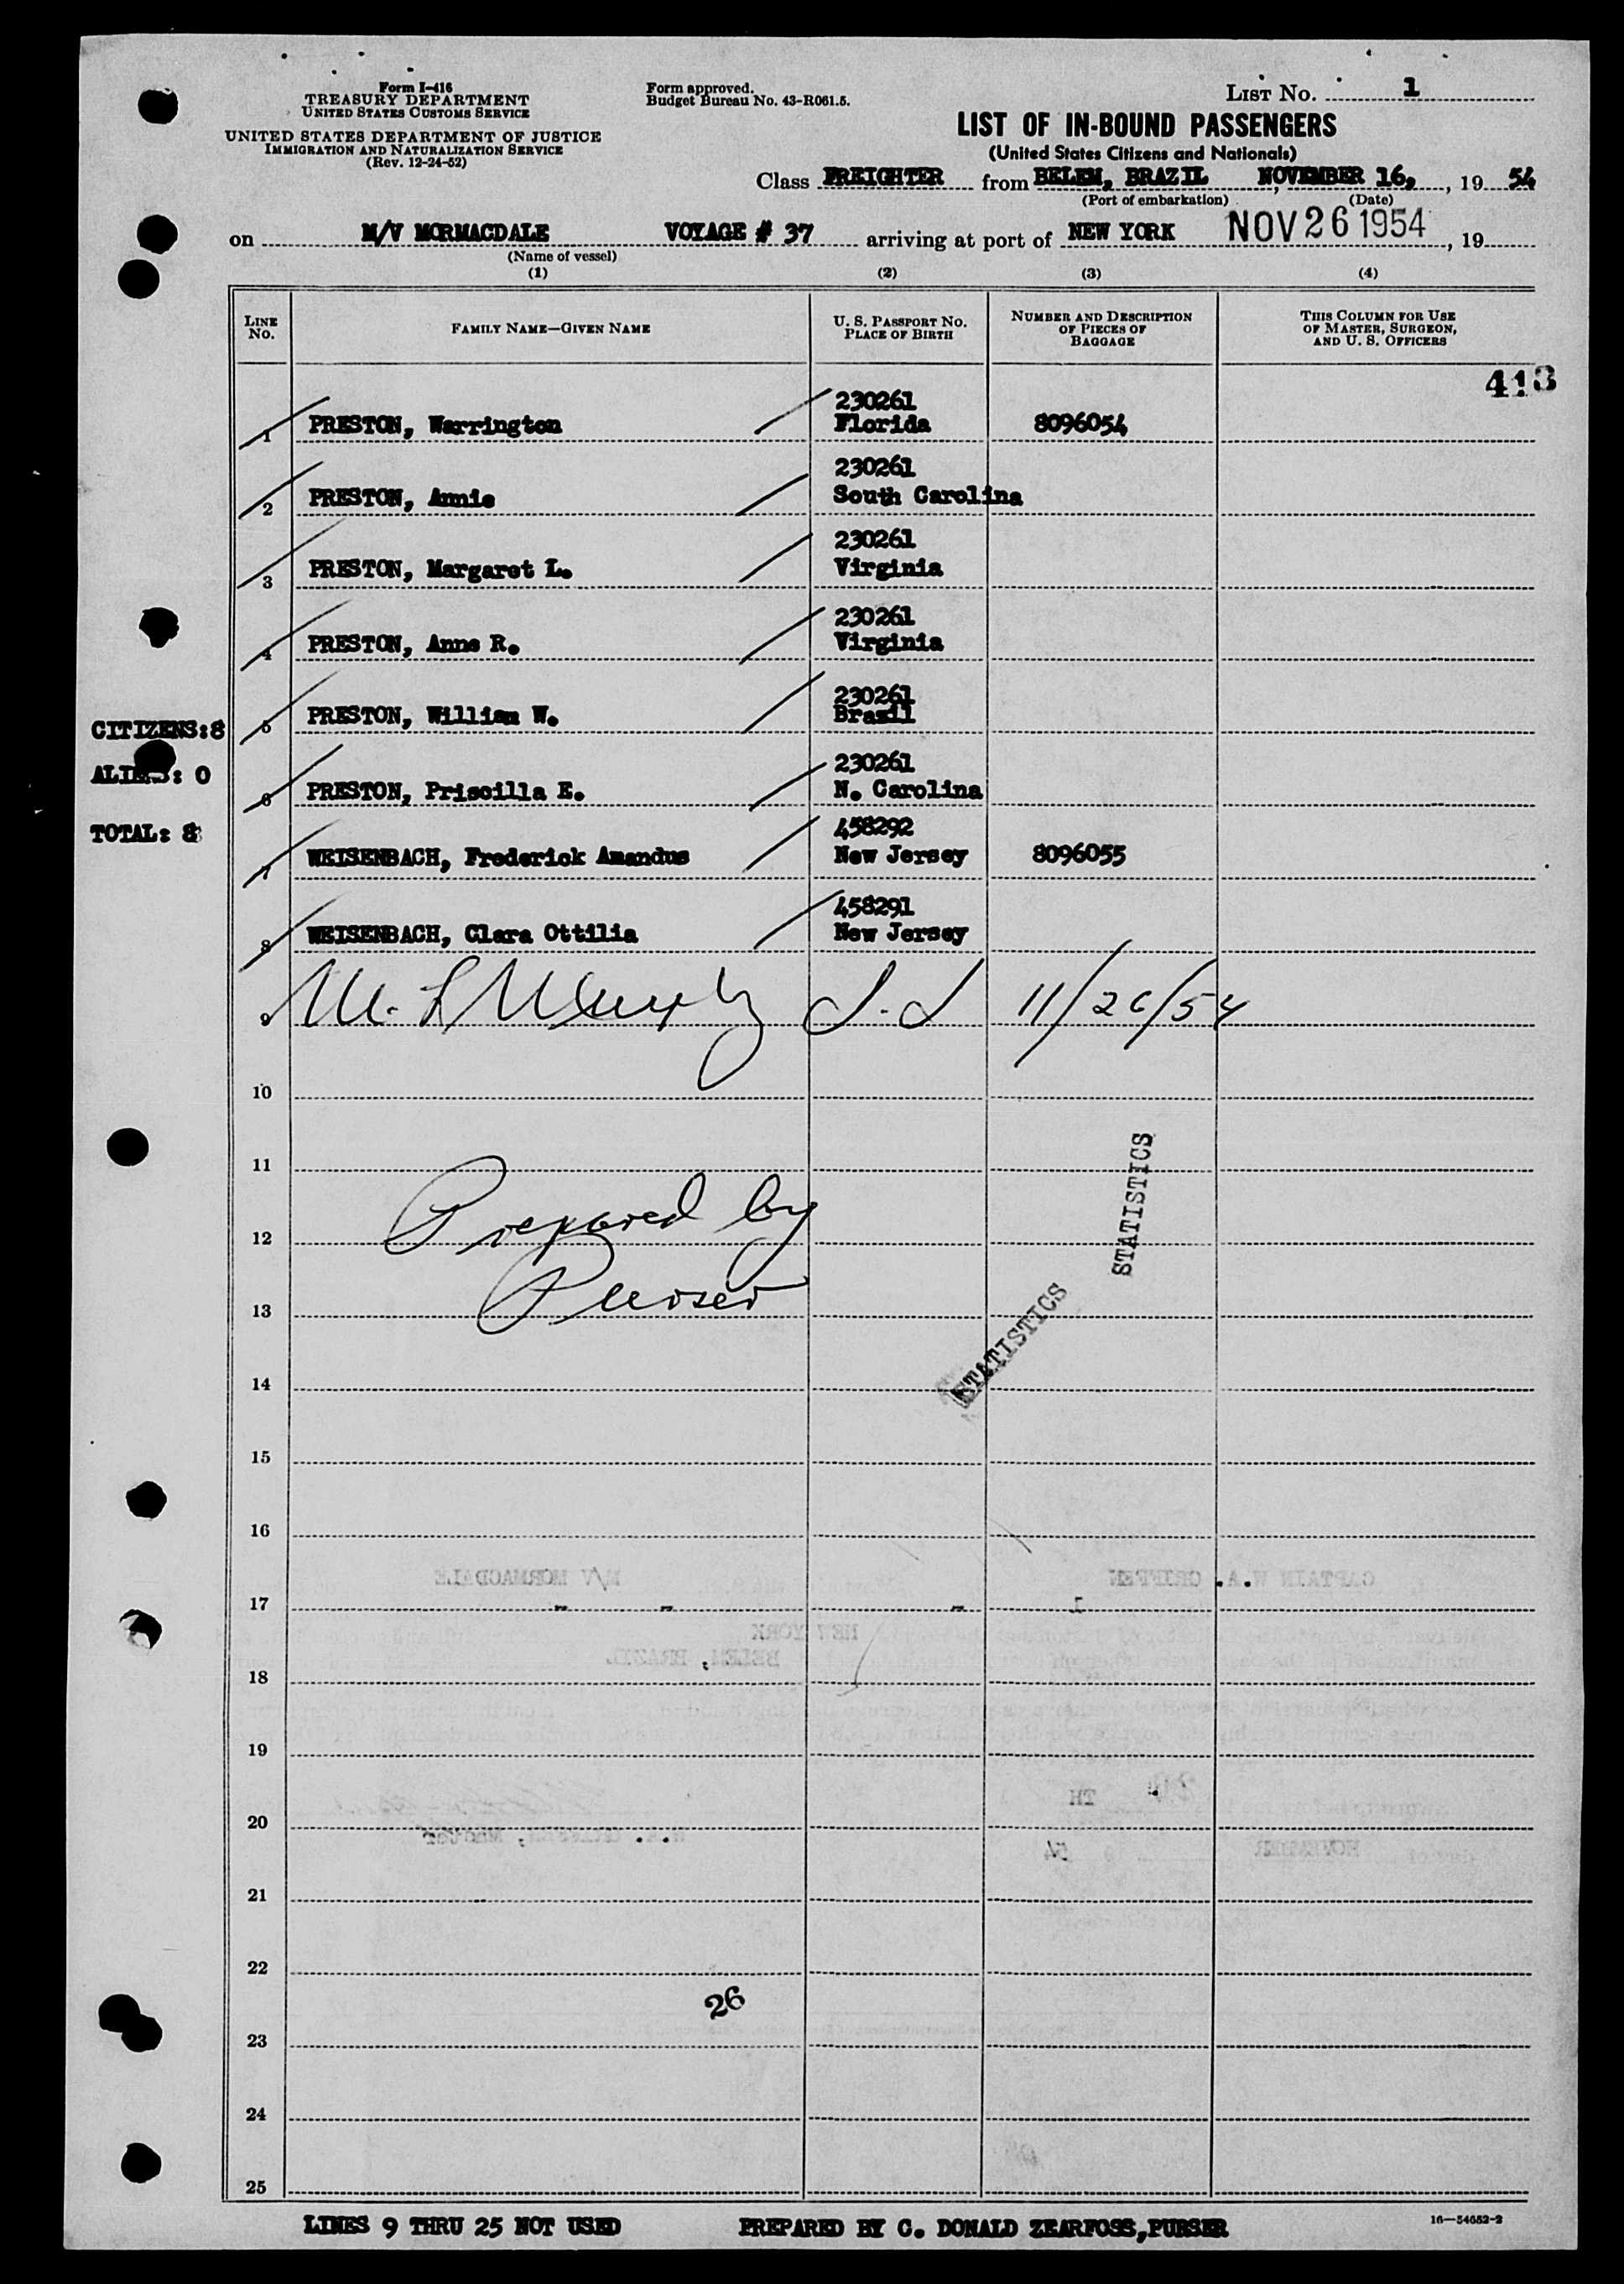 Form I-416
TREASURY DEPARTMENT
UNITED STATES CUSTOMS SERVICE
UNITED STATES DEPARTMENT OF JUSTICE
IMMIGRATION AND NATURALIZATION SERVICE
(Rev. 12-24-52)
Form approved.
Budget Bureau No. 43-R061.5.
LIST NO. 1
LIST OF IN-BOUND PASSENGERS
(United States Citizens and Nationals)
Class FREIGHTER from BELEM, BRAZIL NOVEMBER 16, , 19 54
(Port of embarkation) (Date)
on M/V MORMACDALE VOYAGE # 37 arriving at port of NEW YORK NOV 26 1954 , 19
(Name of vessel)
(1) (2) (3) (4)
LINE NO.
FAMILY NAME—GIVEN NAME
U. S. PASSPORT NO. PLACE OF BIRTH
NUMBER AND DESCRIPTION OF PIECES OF BAGGAGE
THIS COLUMN FOR USE OF MASTER, SURGEON, AND U. S. OFFICERS
413
230261
1 PRESTON, Warrington Florida 8096054
230261
2 PRESTON, Annie South Carolina
230261
3 PRESTON, Margaret L. Virginia
230261
4 PRESTON, Anne R. Virginia
230261
5 PRESTON, William W. Brazil
CITIZENS:8
230261
6 PRESTON, Priscilla E. N. Carolina
ALIENS: 0
458292
TOTAL: 8
7 WEISENBACH, Frederick Amandus New Jersey 8096055
458291
8 WEISENBACH, Clara Ottilia New Jersey
9 M. L. Murphy 11/26/54
10
11
STATISTICS
12 Prepared by
13 Purser
STATISTICS
14
15
16
M/V MORMACDALE CAPTAIN W.A. GRIFFEN
17
NEW YORK
BELEM, BRAZIL
18
19
TH
20
W.A. GRIFFEN, Master
NOVEMBER 54
21
22
26
23
24
25
LINES 9 THRU 25 NOT USED PREPARED BY C. DONALD ZEARFOSS, PURSER
16—54652-2